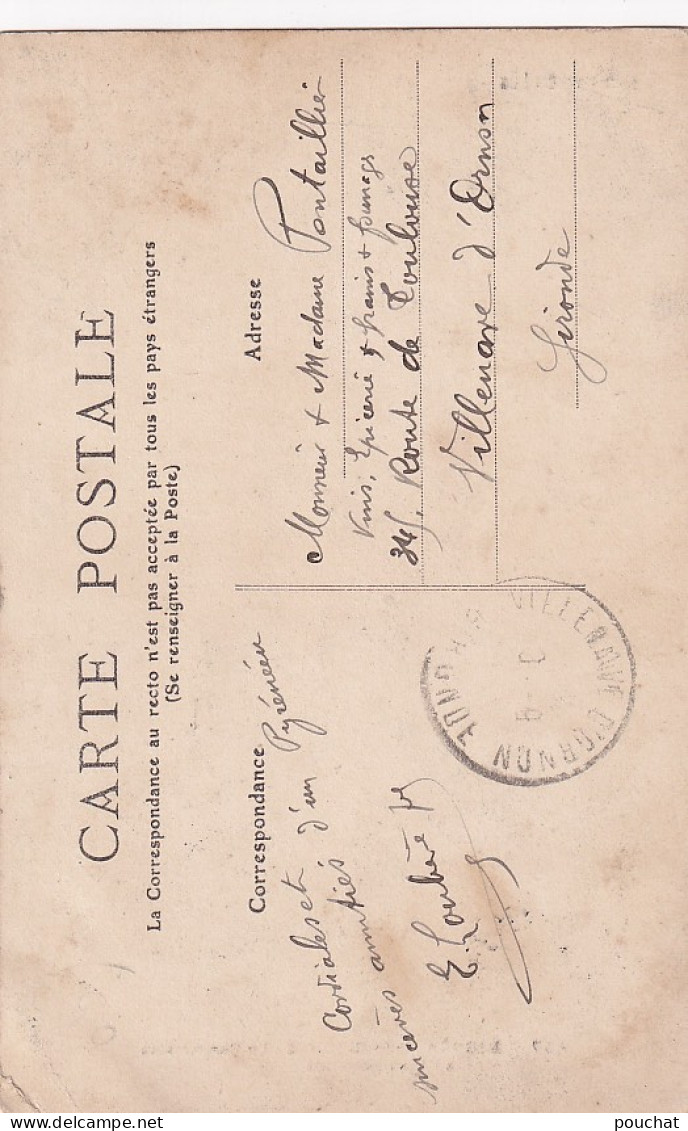 CARTE POSTALE
La Correspondance au recto n'est pas acceptée par tous les pays étrangers
(Se renseigner à la Poste)
Correspondance
Cordiales et
sincères amitiés d'un Pyrénéen
E. Loubère
Adresse
Monsieur & Madame Pontaillier
Vins, Epicerie & grains & fourrages
345, Route de Toulouse
Villenave d'Ornon
Gironde
VILLENAVE D'ORNON
GIRONDE
pouchat